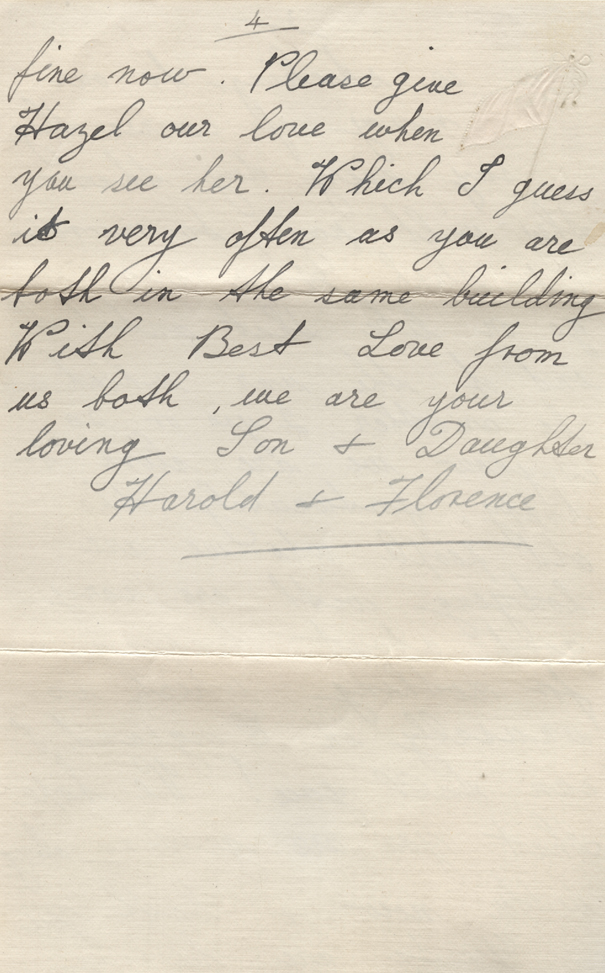 4
fine now. Please give
Hazel our love when
you see her. Which I guess
is very often as you are
both in the same building
With Best Love from
us both, we are your
loving Son & Daughter
Harold & Florence